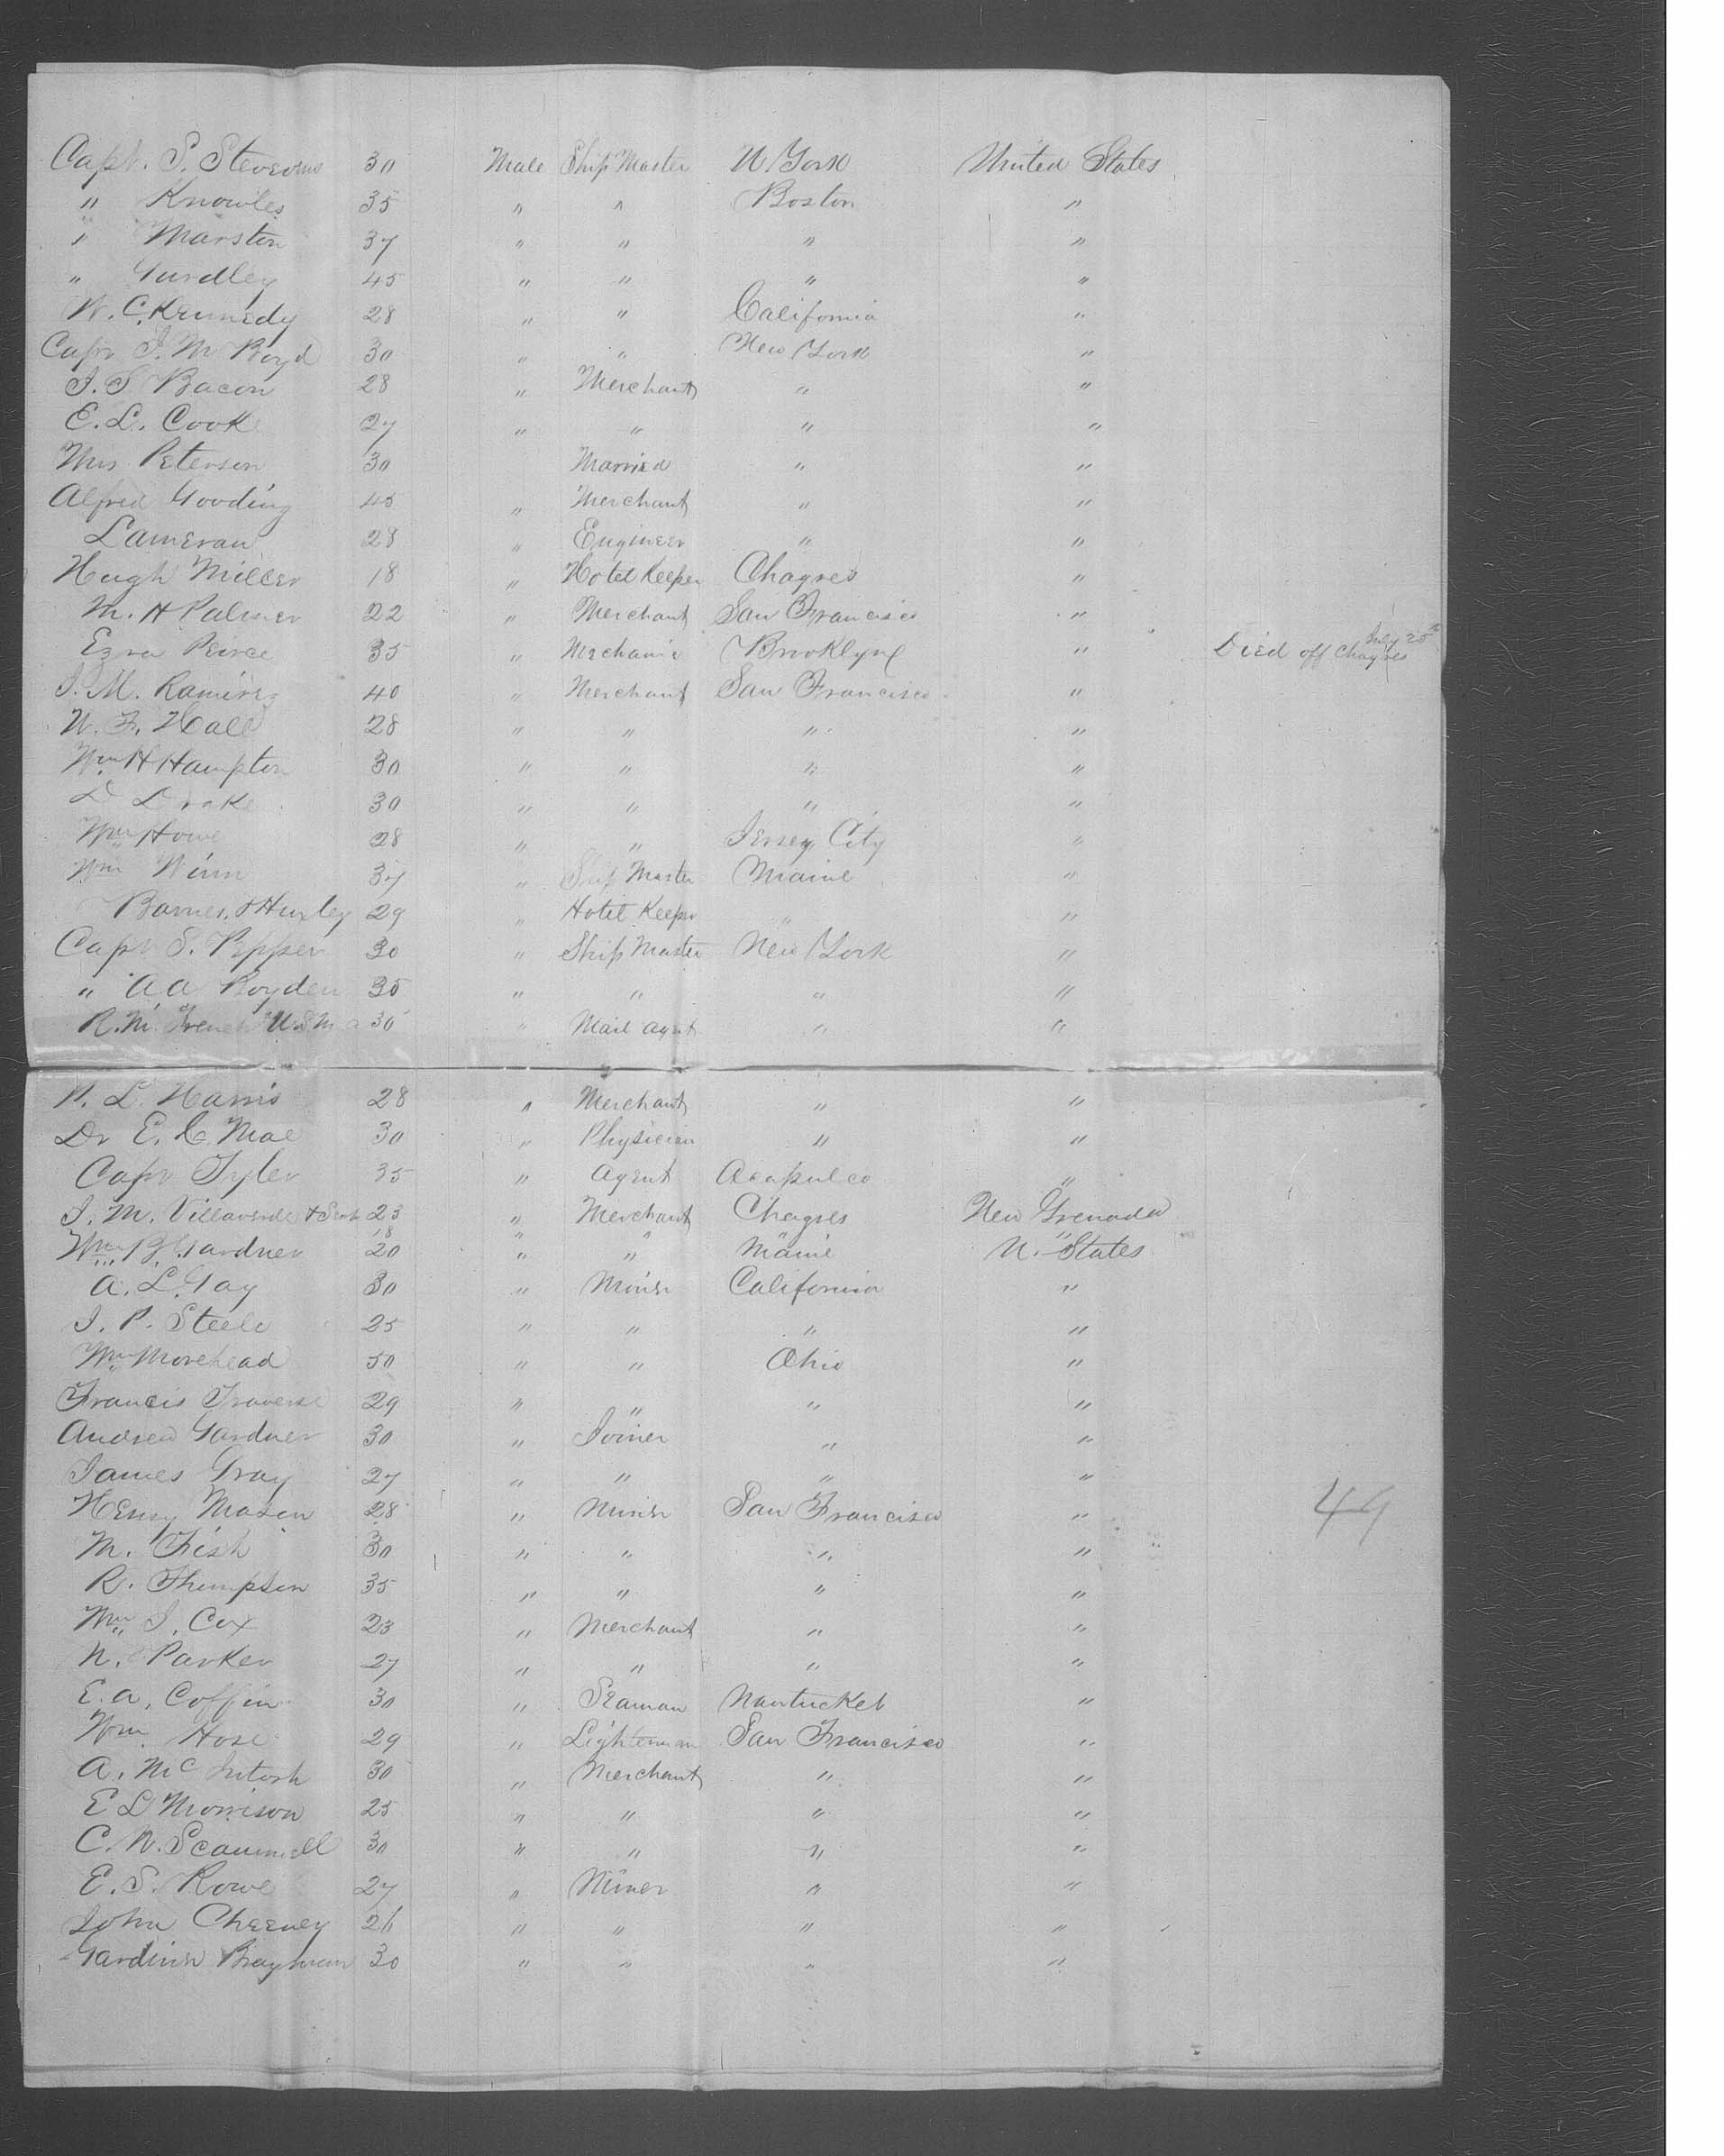 Capt. S. Stevens 30 Male Ship Master N. York United States
" Knowles 35 " " Boston "
" Marston 37 " " " "
" Gurdley 45 " " " "
W. C. Kennedy 28 " " California "
Capt J. M Boyd 30 " " New York "
J. S Bacon 28 " Merchant " "
E. L. Cook 27 " " " "
Mrs Peterson 30 Married " "
Alfred Gooding 45 " Merchant " "
Cameran 28 " Engineer " "
Hugh Miller 18 " Hotel Keeper Chagres "
M. H Palmer 22 " Merchant San Francisco "
Ezra Peirce 35 " Mechanic Brooklyn " Died off Chagres July 25th
J. M. Ramirez 40 " Merchant San Francisco "
W. F. Hall 28 " " " "
Wm H Hampton 30 " " " "
D Drake 30 " " " "
Wm Howe 28 " " Jersey City "
Wm Winn 37 " Ship Master Maine "
Barnes Huxley 29 " Hotel Keeper " "
Capt S. Pepper 30 " Ship Master New York "
" A A Boyden 35 " " " "
R. M. French U S M a 30 " Mail agent " "
P. L. Harris 28 " Merchant " "
Dr E. C. Mae 30 " Physician " "
Capt Tyler 35 " Agent Acapulco "
J. M. Villaverde & Servt 23 " Merchant Chagres New Grenada
18 " " " "
Wm Gardner 20 " " Maine U. States
A. L. Gay 30 " Miner California "
J. P. Steele 25 " " " "
Wm Morehead 50 " " Ohio "
Francis Traverse 29 " " " "
Andrew Gardner 30 " Joiner " "
James Gray 27 " " " "
Henry Mason 28 " Miner San Francisco "
M. Fish 30 " " " "
R. Thompson 35 " " " "
Wm J. Cox 23 " Merchant " "
N. Parker 27 " " " "
E. A. Coffin 30 " Seaman Nantucket "
Wm Hose 29 " Lighterman San Francisco "
A. Mc Intosh 30 " Merchant " "
E L Morrison 25 " " " "
C. N. Scammell 30 " " " "
E. S. Rowe 27 " Miner " "
John Cheeney 26 " " " "
Gardiner Brayman 30 " " " "
49